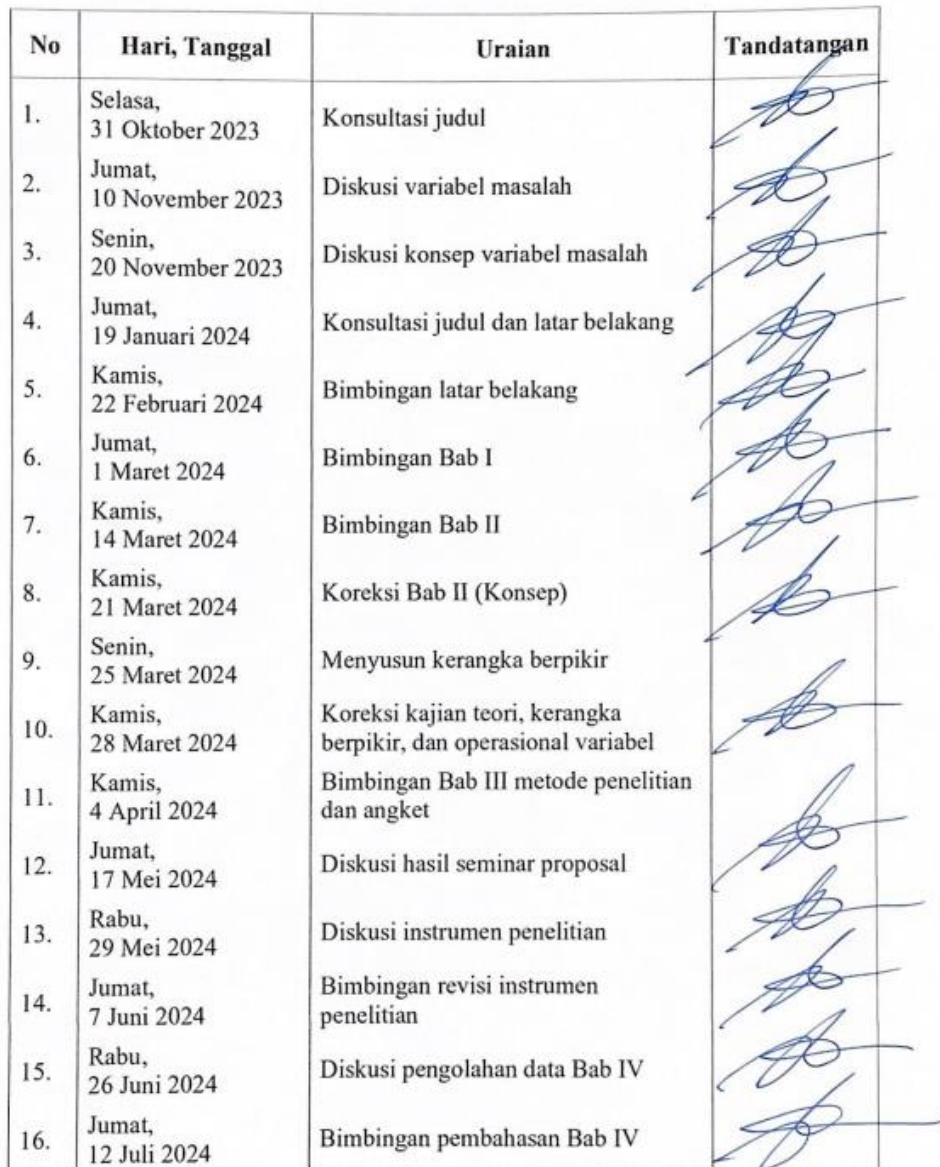 No Hari, Tanggal Uraian Tandatangan
1. Selasa,
31 Oktober 2023 Konsultasi judul
2. Jumat,
10 November 2023 Diskusi variabel masalah
3. Senin,
20 November 2023 Diskusi konsep variabel masalah
4. Jumat,
19 Januari 2024 Konsultasi judul dan latar belakang
5. Kamis,
22 Februari 2024 Bimbingan latar belakang
6. Jumat,
1 Maret 2024 Bimbingan Bab I
7. Kamis,
14 Maret 2024 Bimbingan Bab II
8. Kamis,
21 Maret 2024 Koreksi Bab II (Konsep)
9. Senin,
25 Maret 2024 Menyusun kerangka berpikir
10. Kamis,
28 Maret 2024
Koreksi kajian teori, kerangka
berpikir, dan operasional variabel
11. Kamis,
4 April 2024
Bimbingan Bab III metode penelitian
dan angket
12. Jumat,
17 Mei 2024 Diskusi hasil seminar proposal
13. Rabu,
29 Mei 2024 Diskusi instrumen penelitian
14. Jumat,
7 Juni 2024
Bimbingan revisi instrumen
penelitian
15. Rabu,
26 Juni 2024 Diskusi pengolahan data Bab IV
16. Jumat,
12 Juli 2024 Bimbingan pembahasan Bab IV